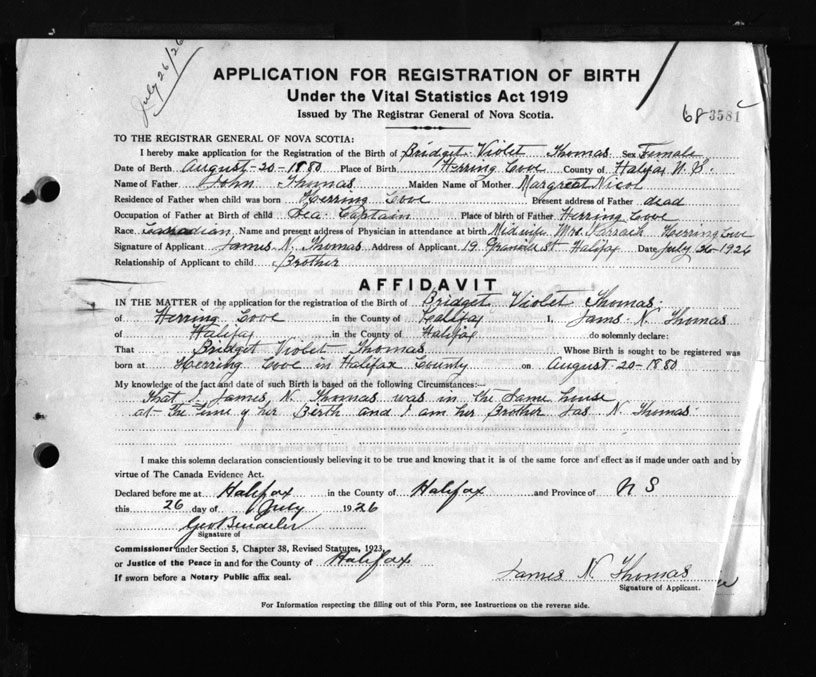 July 26/26
APPLICATION FOR REGISTRATION OF BIRTH
Under the Vital Statistics Act 1919
Issued by The Registrar General of Nova Scotia.
68-3581
TO THE REGISTRAR GENERAL OF NOVA SCOTIA:
I hereby make application for the Registration of the Birth of Bridget Violet Thomas Sex Female
Date of Birth August-20-1880 Place of Birth Herring Cove County of Halifax N.S.
Name of Father John Thomas Maiden Name of Mother Margreat Nicol
Residence of Father when child was born Herring Cove Present address of Father dead
Occupation of Father at Birth of child Sea Captain Place of birth of Father Herring Cove
Race Canadian Name and present address of Physician in attendance at birth Midwife Mrs. Herring Cove
Signature of Applicant James N. Thomas Address of Applicant 19 Granville St Halifax Date July 26-1926
Relationship of Applicant to child Brother
AFFIDAVIT
IN THE MATTER of the application for the registration of the Birth of Bridget Violet Thomas
of Herring Cove in the County of Halifax I, Jams N. Thomas
of Halifax in the County of Halifax do solemnly declare:
That Bridget Violet Thomas Whose Birth is sought to be registered was
born at Herring Cove in Halifax County on August-20-1880
My knowledge of the fact and date of such Birth is based on the following Circumstances:—
That I, James, N. Thomas was in the same house
at the time of her Birth and I am her Brother Jas N Thomas
I make this solemn declaration conscientiously believing it to be true and knowing that it is of the same force and effect as if made under oath and by
virtue of The Canada Evidence Act.
Declared before me at Halifax in the County of Halifax and Province of N S
this 26 day of July 1926
Geo
Signature of
Commissioner under Section 5, Chapter 38, Revised Statutes, 1923,
or Justice of the Peace in and for the County of Halifax
If sworn before a Notary Public affix seal.
James N. Thomas
Signature of Applicant.
For Information respecting the filling out of this Form, see Instructions on the reverse side.